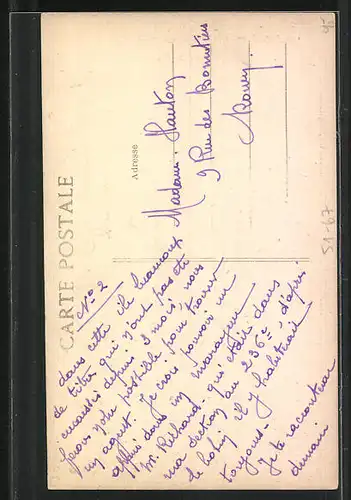 CARTE POSTALE
Adresse
Madame Hauton
9 Rue des Bonnetiers
Rouen
N° 2
dans cette ville beaucoup
de titres qui n'ont pas été
encaissés depuis 3 mois nous
ferons notre possible pour trouver
un agent. Je crois pouvoir un
appui dans un
M. Richard qui était dans
ma section au 236e
le baby il y
toujours
Je te raconterai
demain
51-67